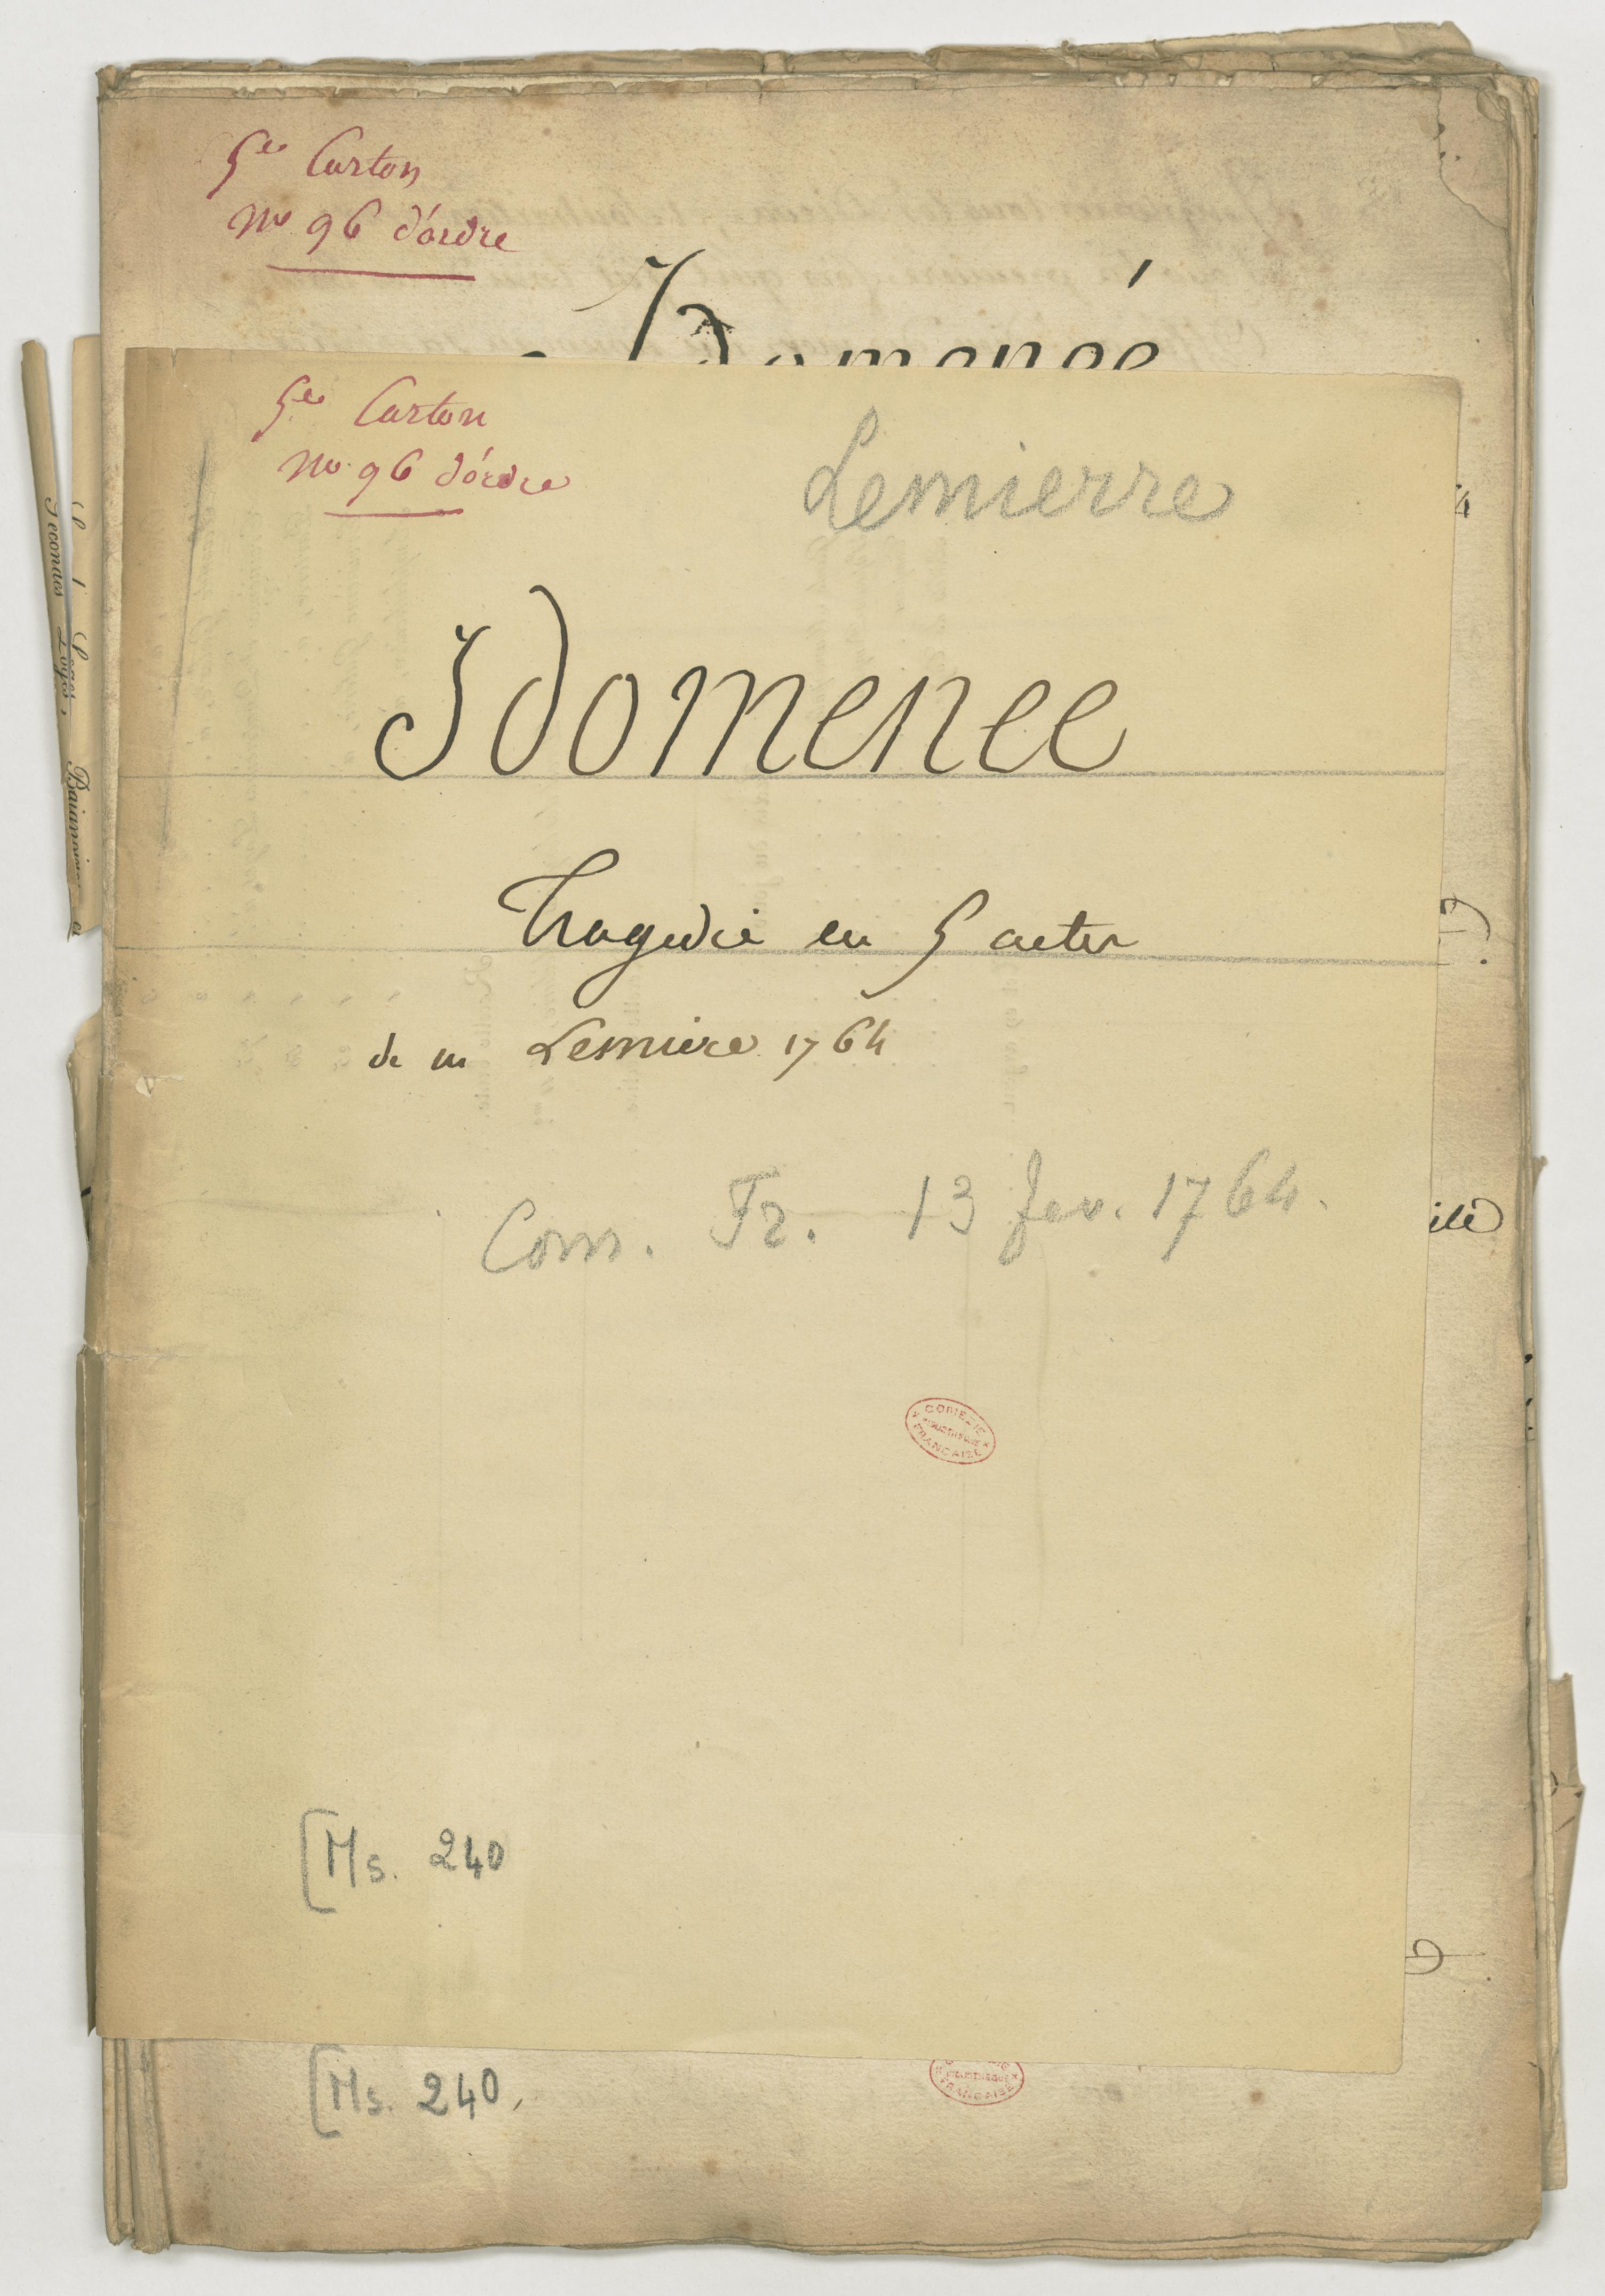 5e Carton
No 96 d'ordre
Idomené
5e Carton
No 96 d'ordre
Lemierre
Idomenee
Tragedie en 5 actes
de m Lemierre 1764
Com. Fr. 13 fev. 1764.
COMEDIE
FRANCAISE
[Ms. 240
[Ms. 240.
FRANCAISE
Secondes Loges,